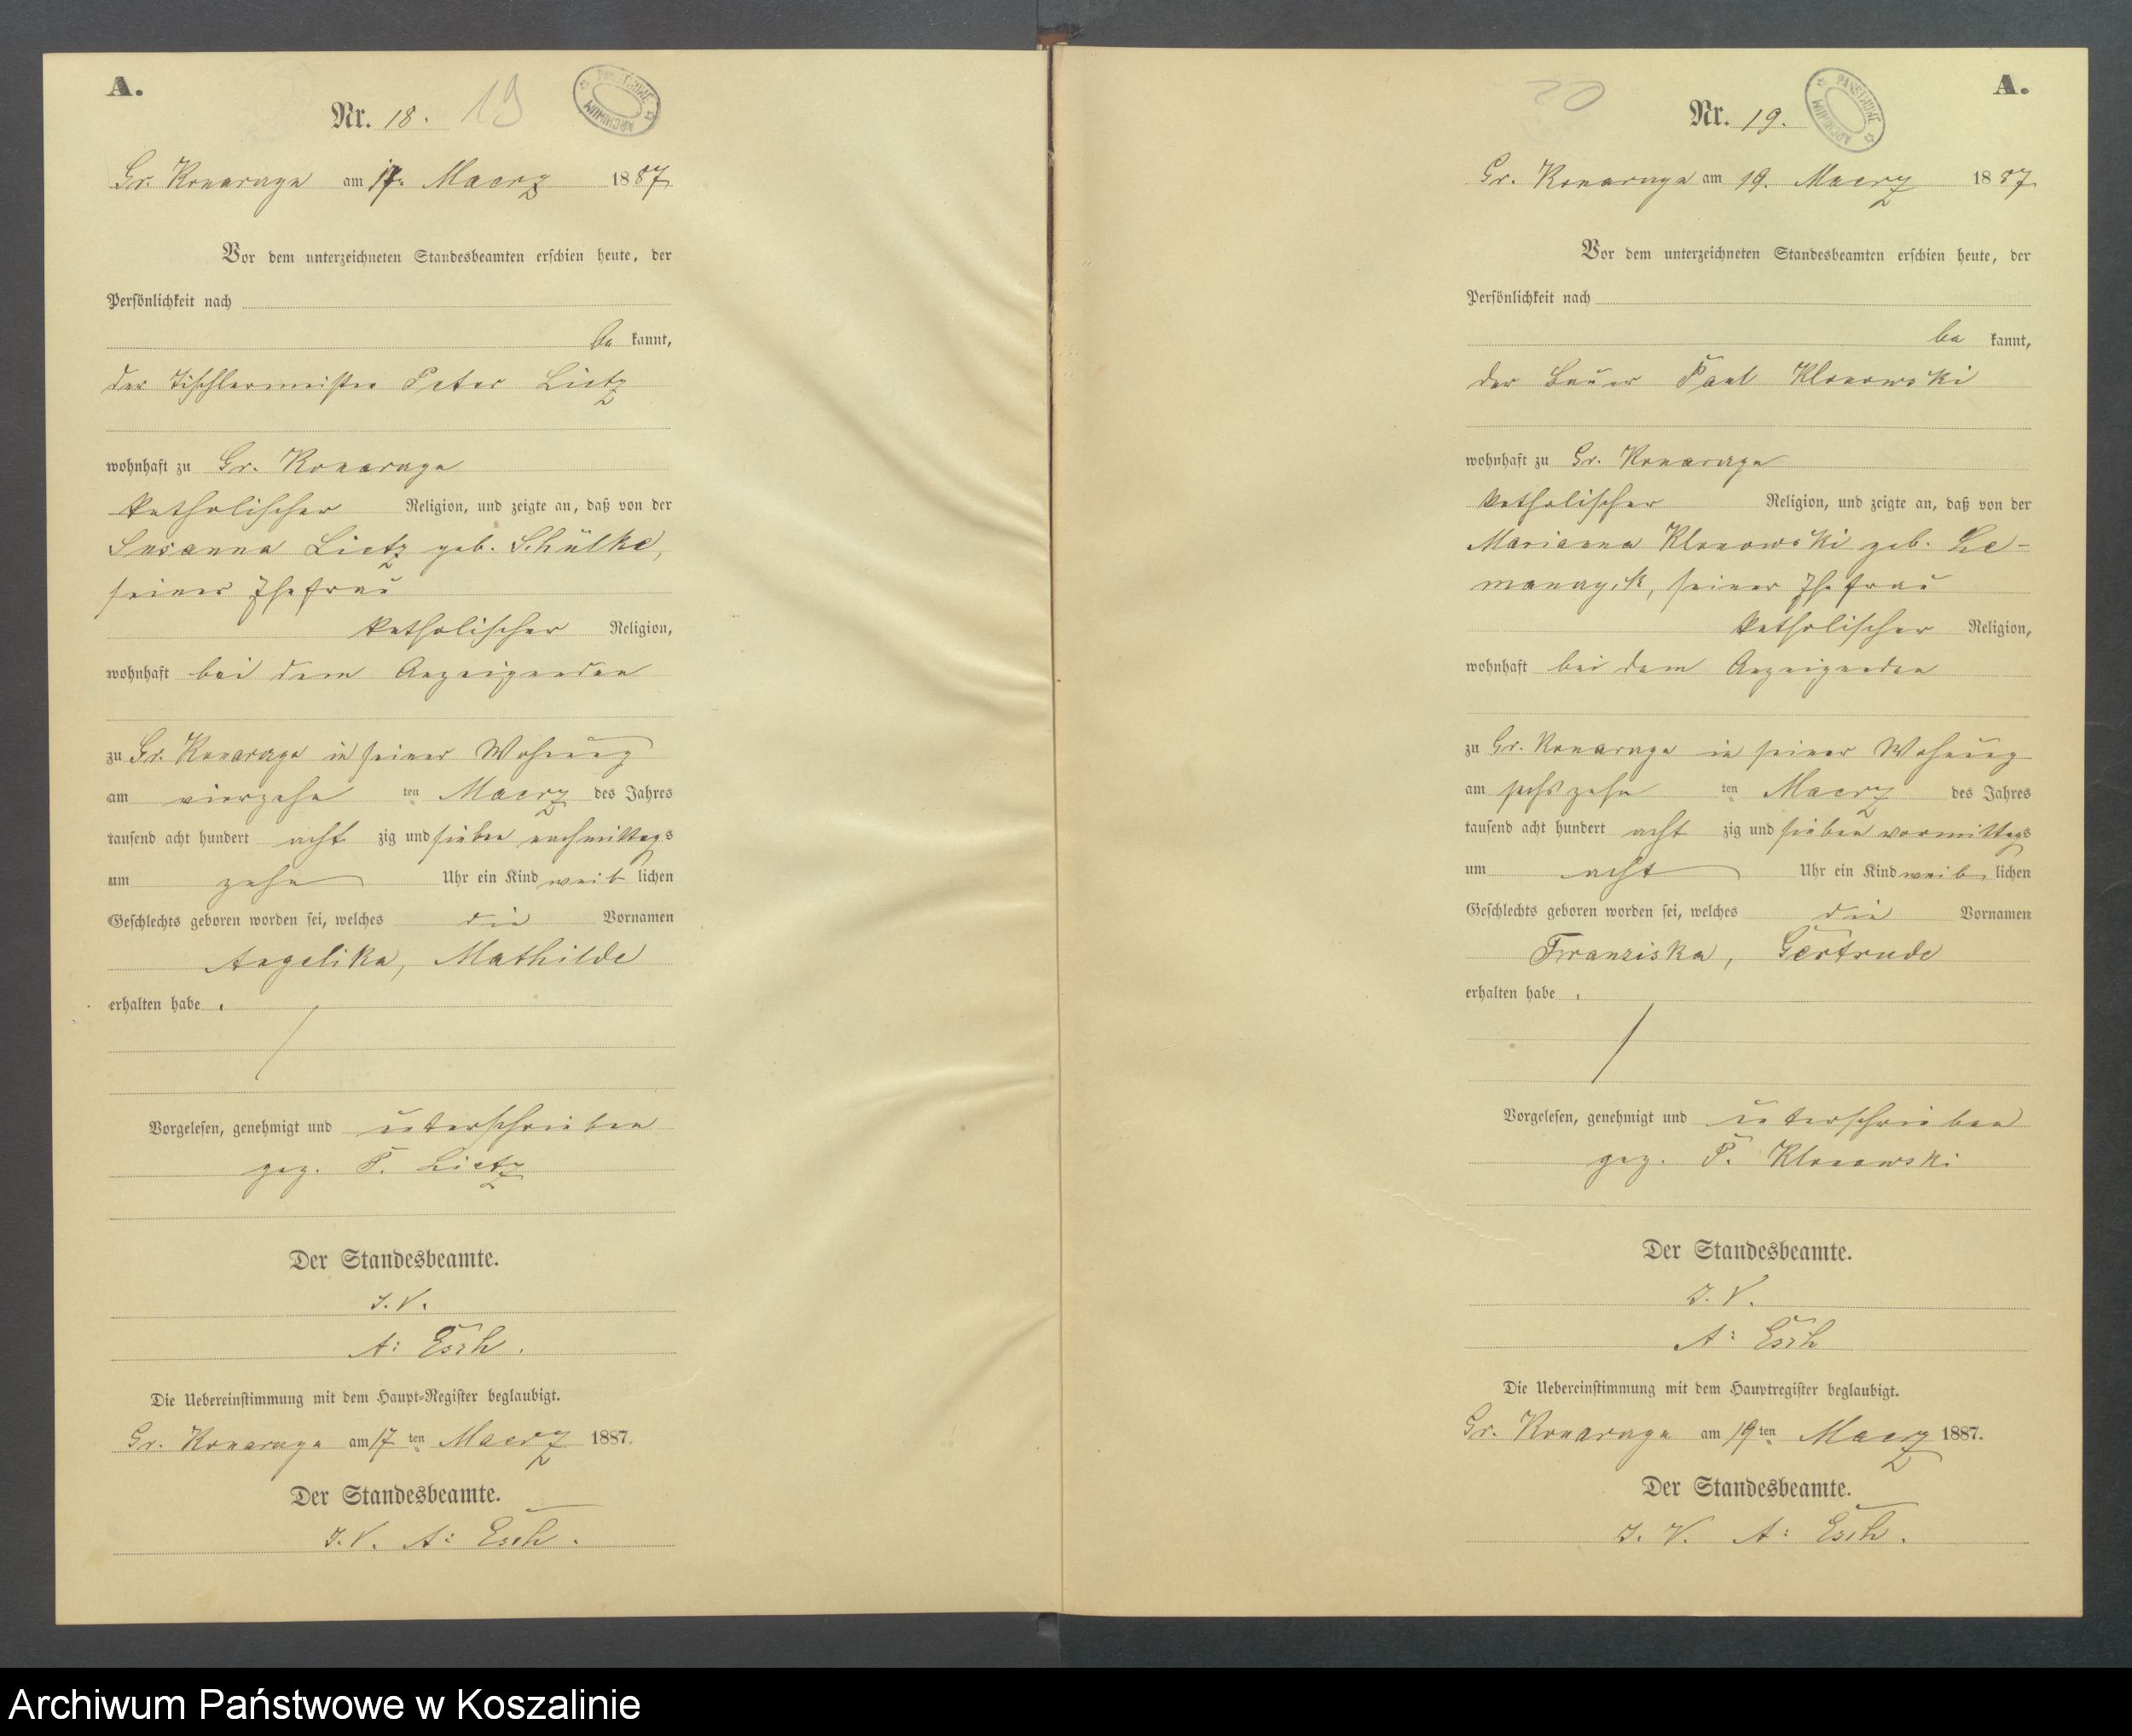 A.
Nr. 18.
19
PAŃSTWOWE
ARCHIWUM
Gr. Konarzyn am 17. Maerz 1887
Vor dem unterzeichneten Standesbeamten erschien heute, der
Persönlichkeit nach
be kannt,
der Tischlermeister Peter Lietz
wohnhaft zu Gr. Konarzyn
katholischer Religion, und zeigte an, daß von der
Susanna Lietz geb. Schülke,
seiner Ehefrau
katholischer Religion,
wohnhaft bei dem Anzeigenden
zu Gr. Konarzyn in seiner Wohnung
am vierzehn ten Maerz des Jahres
tausend acht hundert acht zig und sieben nachmittags
um zehn Uhr ein Kind weib lichen
Geschlechts geboren worden sei, welches die Vornamen
Angelika, Mathilde
erhalten habe.
Vorgelesen, genehmigt und unterschrieben
gez. P. Lietz
Der Standesbeamte.
J. V.
A: Esch.
Die Uebereinstimmung mit dem Haupt-Register beglaubigt.
Gr. Konarzyn am 17 ten Maerz 1887.
Der Standesbeamte.
J. V. A: Esch.
A.
20
Nr. 19.
PAŃSTWOWE
ARCHIWUM
Gr. Konarzyn am 19. Maerz 1887
Vor dem unterzeichneten Standesbeamten erschien heute, der
Persönlichkeit nach
be kannt,
der Bauer Paul Klonowski
wohnhaft zu Gr. Konarzyn
katholischer Religion, und zeigte an, daß von der
Marianna Klonowski geb.
seiner Ehefrau
katholischer Religion,
wohnhaft bei dem Anzeigenden
zu Gr. Konarzyn in seiner Wohnung
am sechszehn ten Maerz des Jahres
tausend acht hundert acht zig und sieben vormittags
um acht Uhr ein Kind weib lichen
Geschlechts geboren worden sei, welches die Vornamen
Franziska, Gertrude
erhalten habe.
Vorgelesen, genehmigt und unterschrieben
gez. P. Klonowski
Der Standesbeamte.
J. V.
A: Esch
Die Uebereinstimmung mit dem Hauptregister beglaubigt.
Gr. Konarzyn am 19 ten Maerz 1887.
Der Standesbeamte.
J. V. A: Esch.
Archiwum Państwowe w Koszalinie